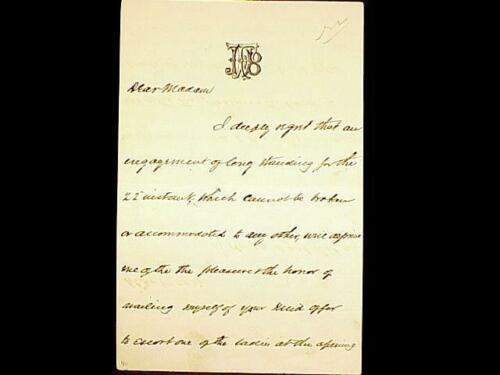 Dear Madam
I deeply regret that an
engagement of long standing for the
22 instant, which cannot be broken
or accommodated to any other, will deprive
me of the the pleasure & the honor of
availing myself of your kind offer
to escort one of the ladies at the opening